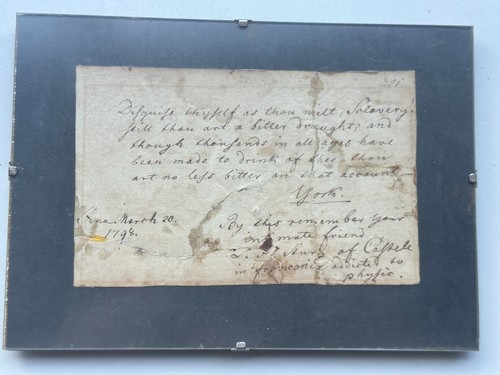 Disguise thyself as thou wilt, Slavery
still thou art a bitter draught; and
though thousands in all ages have
been made to drink of thee thou
art no less bitter on that account—
York.
Jena March 20.
1798.
By this remember your
intimate friend
of Castele
in franconia addicted to
physic.